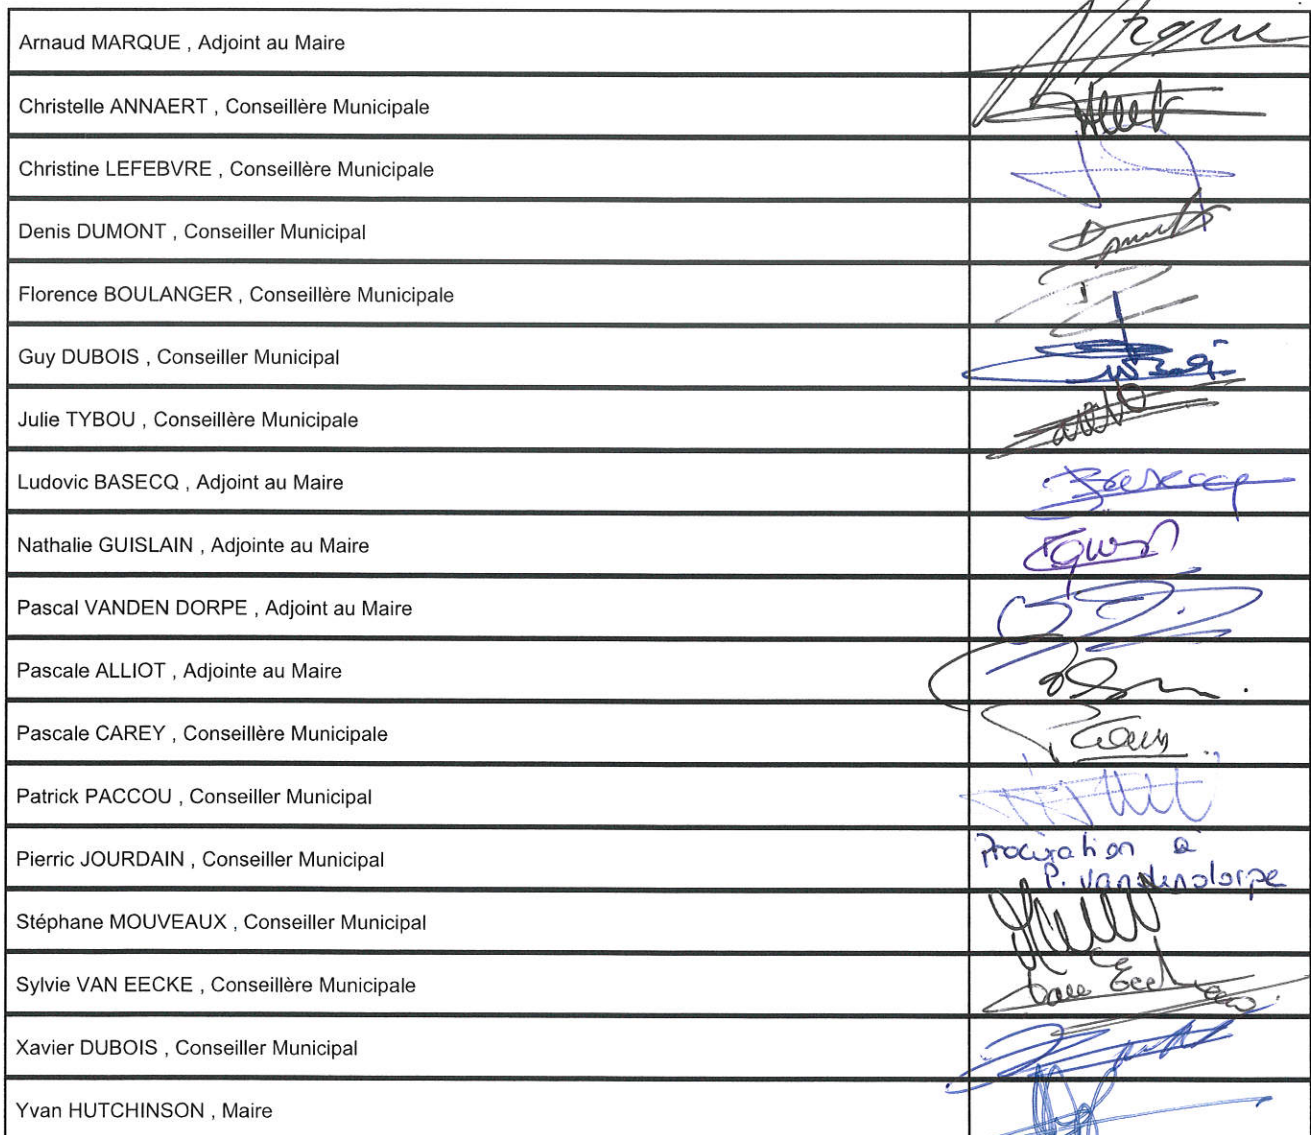 Arnaud MARQUE , Adjoint au Maire
Christelle ANNAERT , Conseillère Municipale
Christine LEFEBVRE , Conseillère Municipale
Denis DUMONT , Conseiller Municipal
Florence BOULANGER , Conseillère Municipale
Guy DUBOIS , Conseiller Municipal
Julie TYBOU , Conseillère Municipale
Ludovic BASECQ , Adjoint au Maire
Nathalie GUISLAIN , Adjointe au Maire
Pascal VANDEN DORPE , Adjoint au Maire
Pascale ALLIOT , Adjointe au Maire
Pascale CAREY , Conseillère Municipale
Patrick PACCOU , Conseiller Municipal
Pierric JOURDAIN , Conseiller Municipal
Procuration à
P. Vandendorpe
Stéphane MOUVEAUX , Conseiller Municipal
Sylvie VAN EECKE , Conseillère Municipale
Xavier DUBOIS , Conseiller Municipal
Yvan HUTCHINSON , Maire